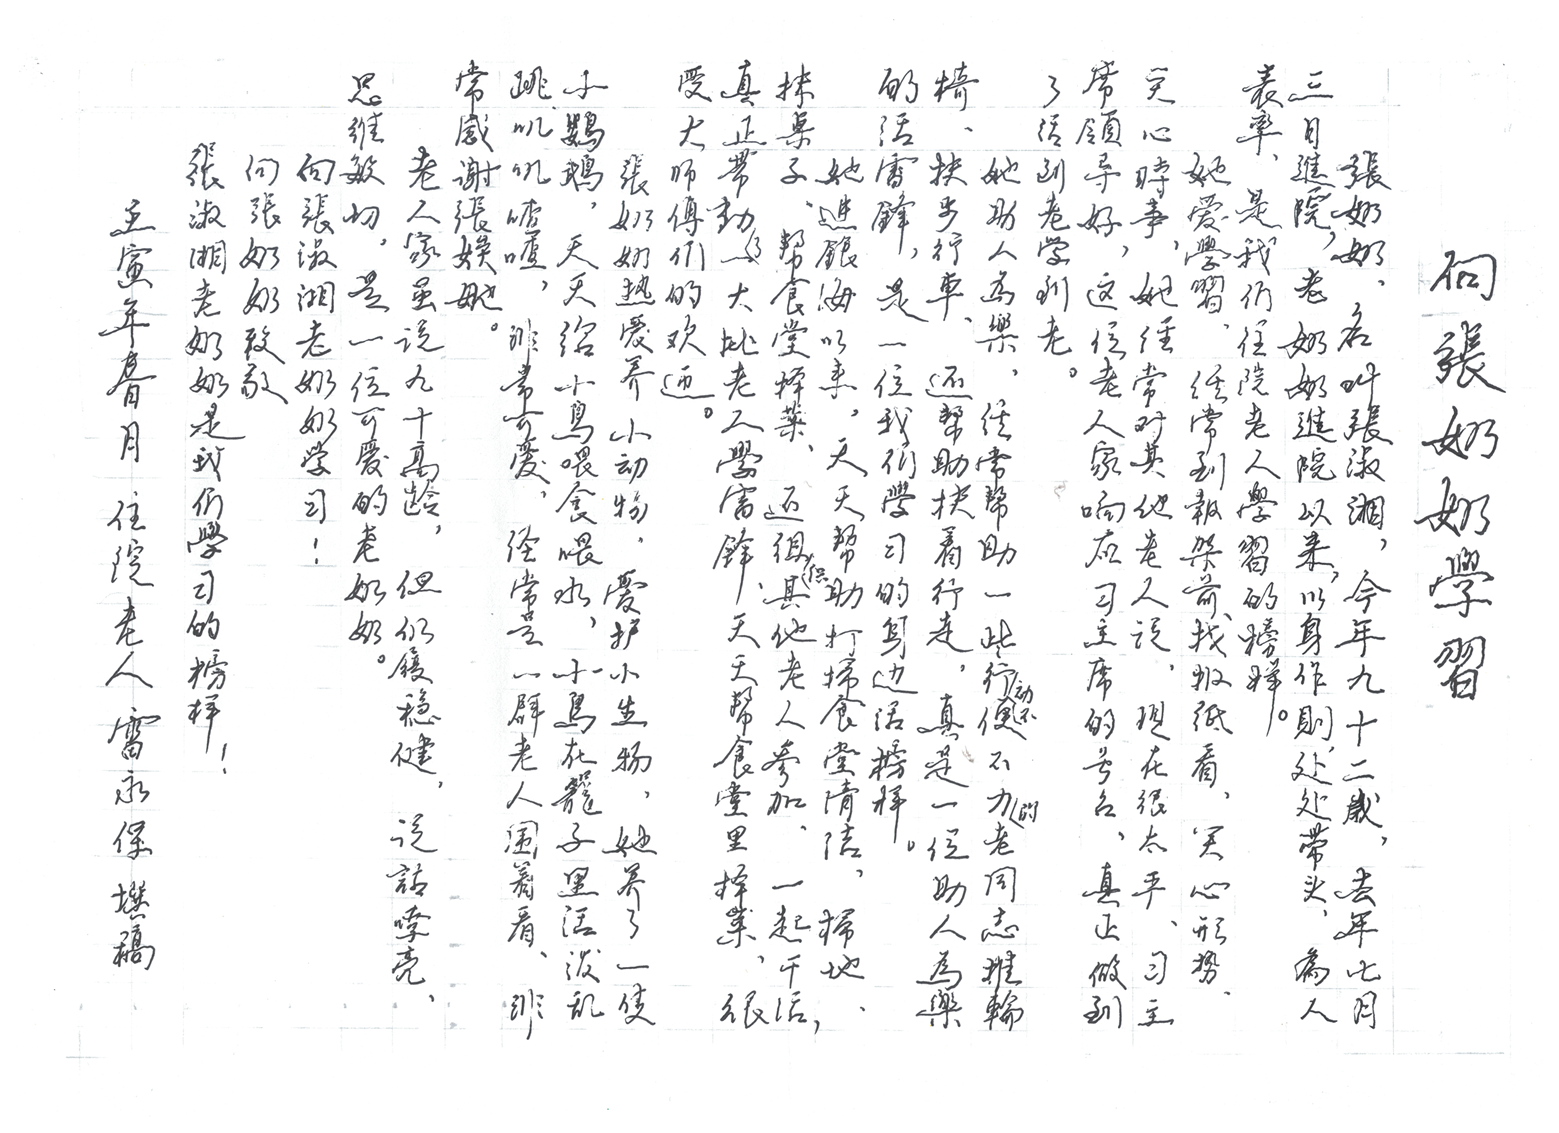 向張奶奶學習
張奶奶、名叫張淑湘，今年九十二歲，去年七月
三日進院，老奶奶進院以来，以身作則、处处带头、為人
表率、是我们住院老人學習的榜样。
她爱學習、经常到報架前找报纸看、关心形势、
关心時事，她经常对其他老人说，现在很太平、习主
席领导好，这位老人家响应习主席的号召，真正做到
了活到老学到老。
她助人為樂，经常帮助一些行动不便不力的老同志推輪
椅、扶步行車、还帮助扶着行走，真是一位助人為樂
的活雷鋒，是一位我们學习的身边活榜样。
她進銀海以来，天天帮助打掃食堂清洁，掃地、
抹桌子、帮食堂择菜、还组织其他老人参加、一起干活，
真正带動了一大批老人學雷鋒，天天帮食堂里择菜、很
受大师傅们的欢迎。
張奶奶热爱养小动物，爱护小生物，她养了一隻
小鹦鵡，天天给小鳥喂食喂水，小鳥在籠子里活泼乱
跳、叽叽喳喳，非常可爱、经常是一群老人围着看、非
常感谢張娭毑。
老人家虽说九十高龄，但仍履稳健，说話嘹亮、
思维敏切，是一位可爱的老奶奶。
向張淑湘老奶奶学习！
向張奶奶致敬
張淑湘老奶奶是我们學习的榜样！
壬寅年春月住院老人雷永保撰稿